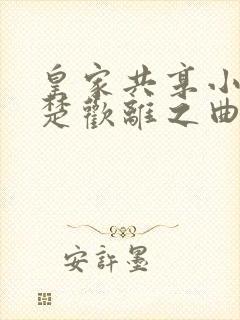 皇家共享小
楚歡離之曲
安許墨